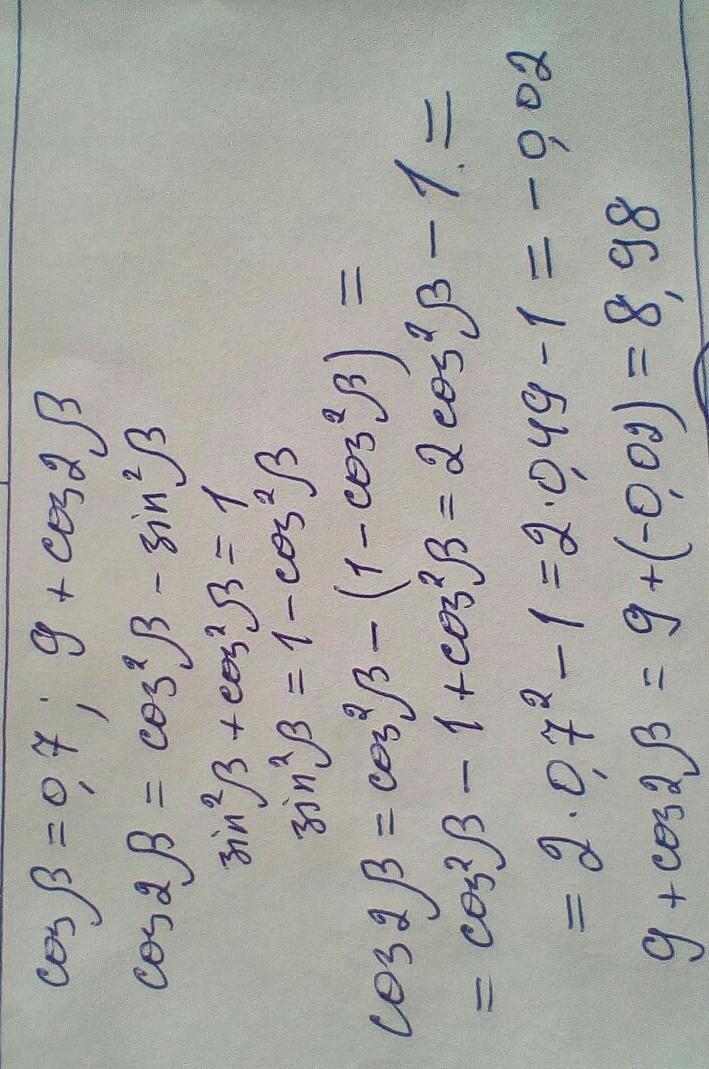 cosβ = 0,7; 9 + cos2β
cos2β = cos²β − sin²β
sin²β + cos²β = 1
sin²β = 1 − cos²β
cos2β = cos²β − (1 − cos²β) =
= cos²β − 1 + cos²β = 2cos²β − 1 =
= 2·0,7² − 1 = 2·0,49 − 1 = −0,02
9 + cos2β = 9 + (−0,02) = 8,98